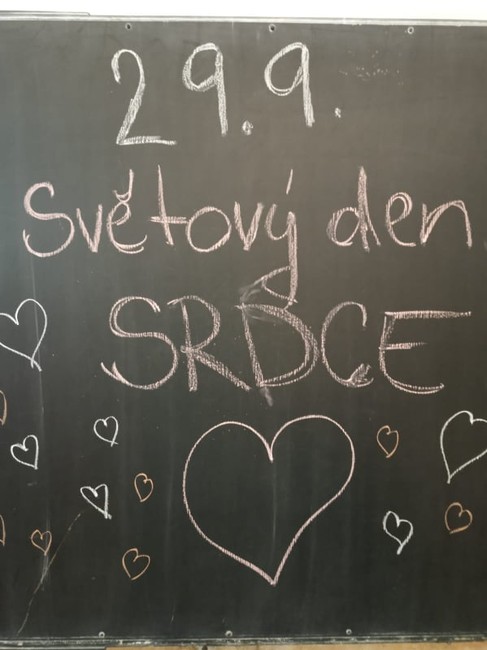 29.9.
Světový den
SRDCE